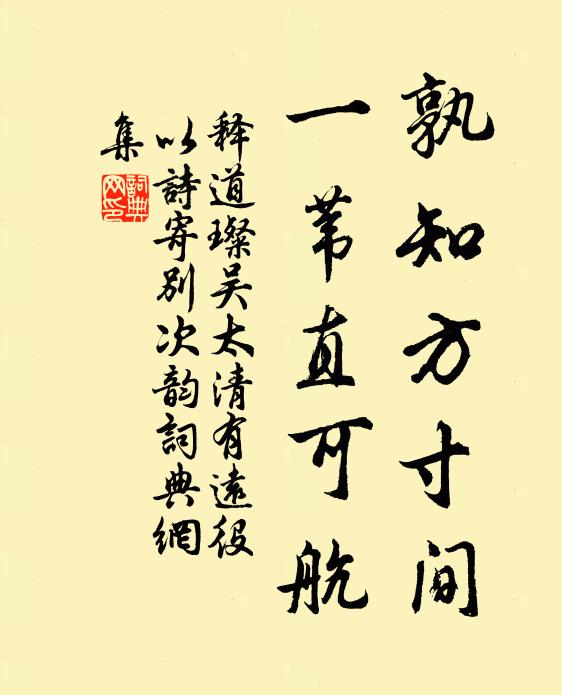 孰知方寸间
一苇直可航
释道璨吴太清有遠役
以詩寄别次韵詞典網
集
詞典
网印